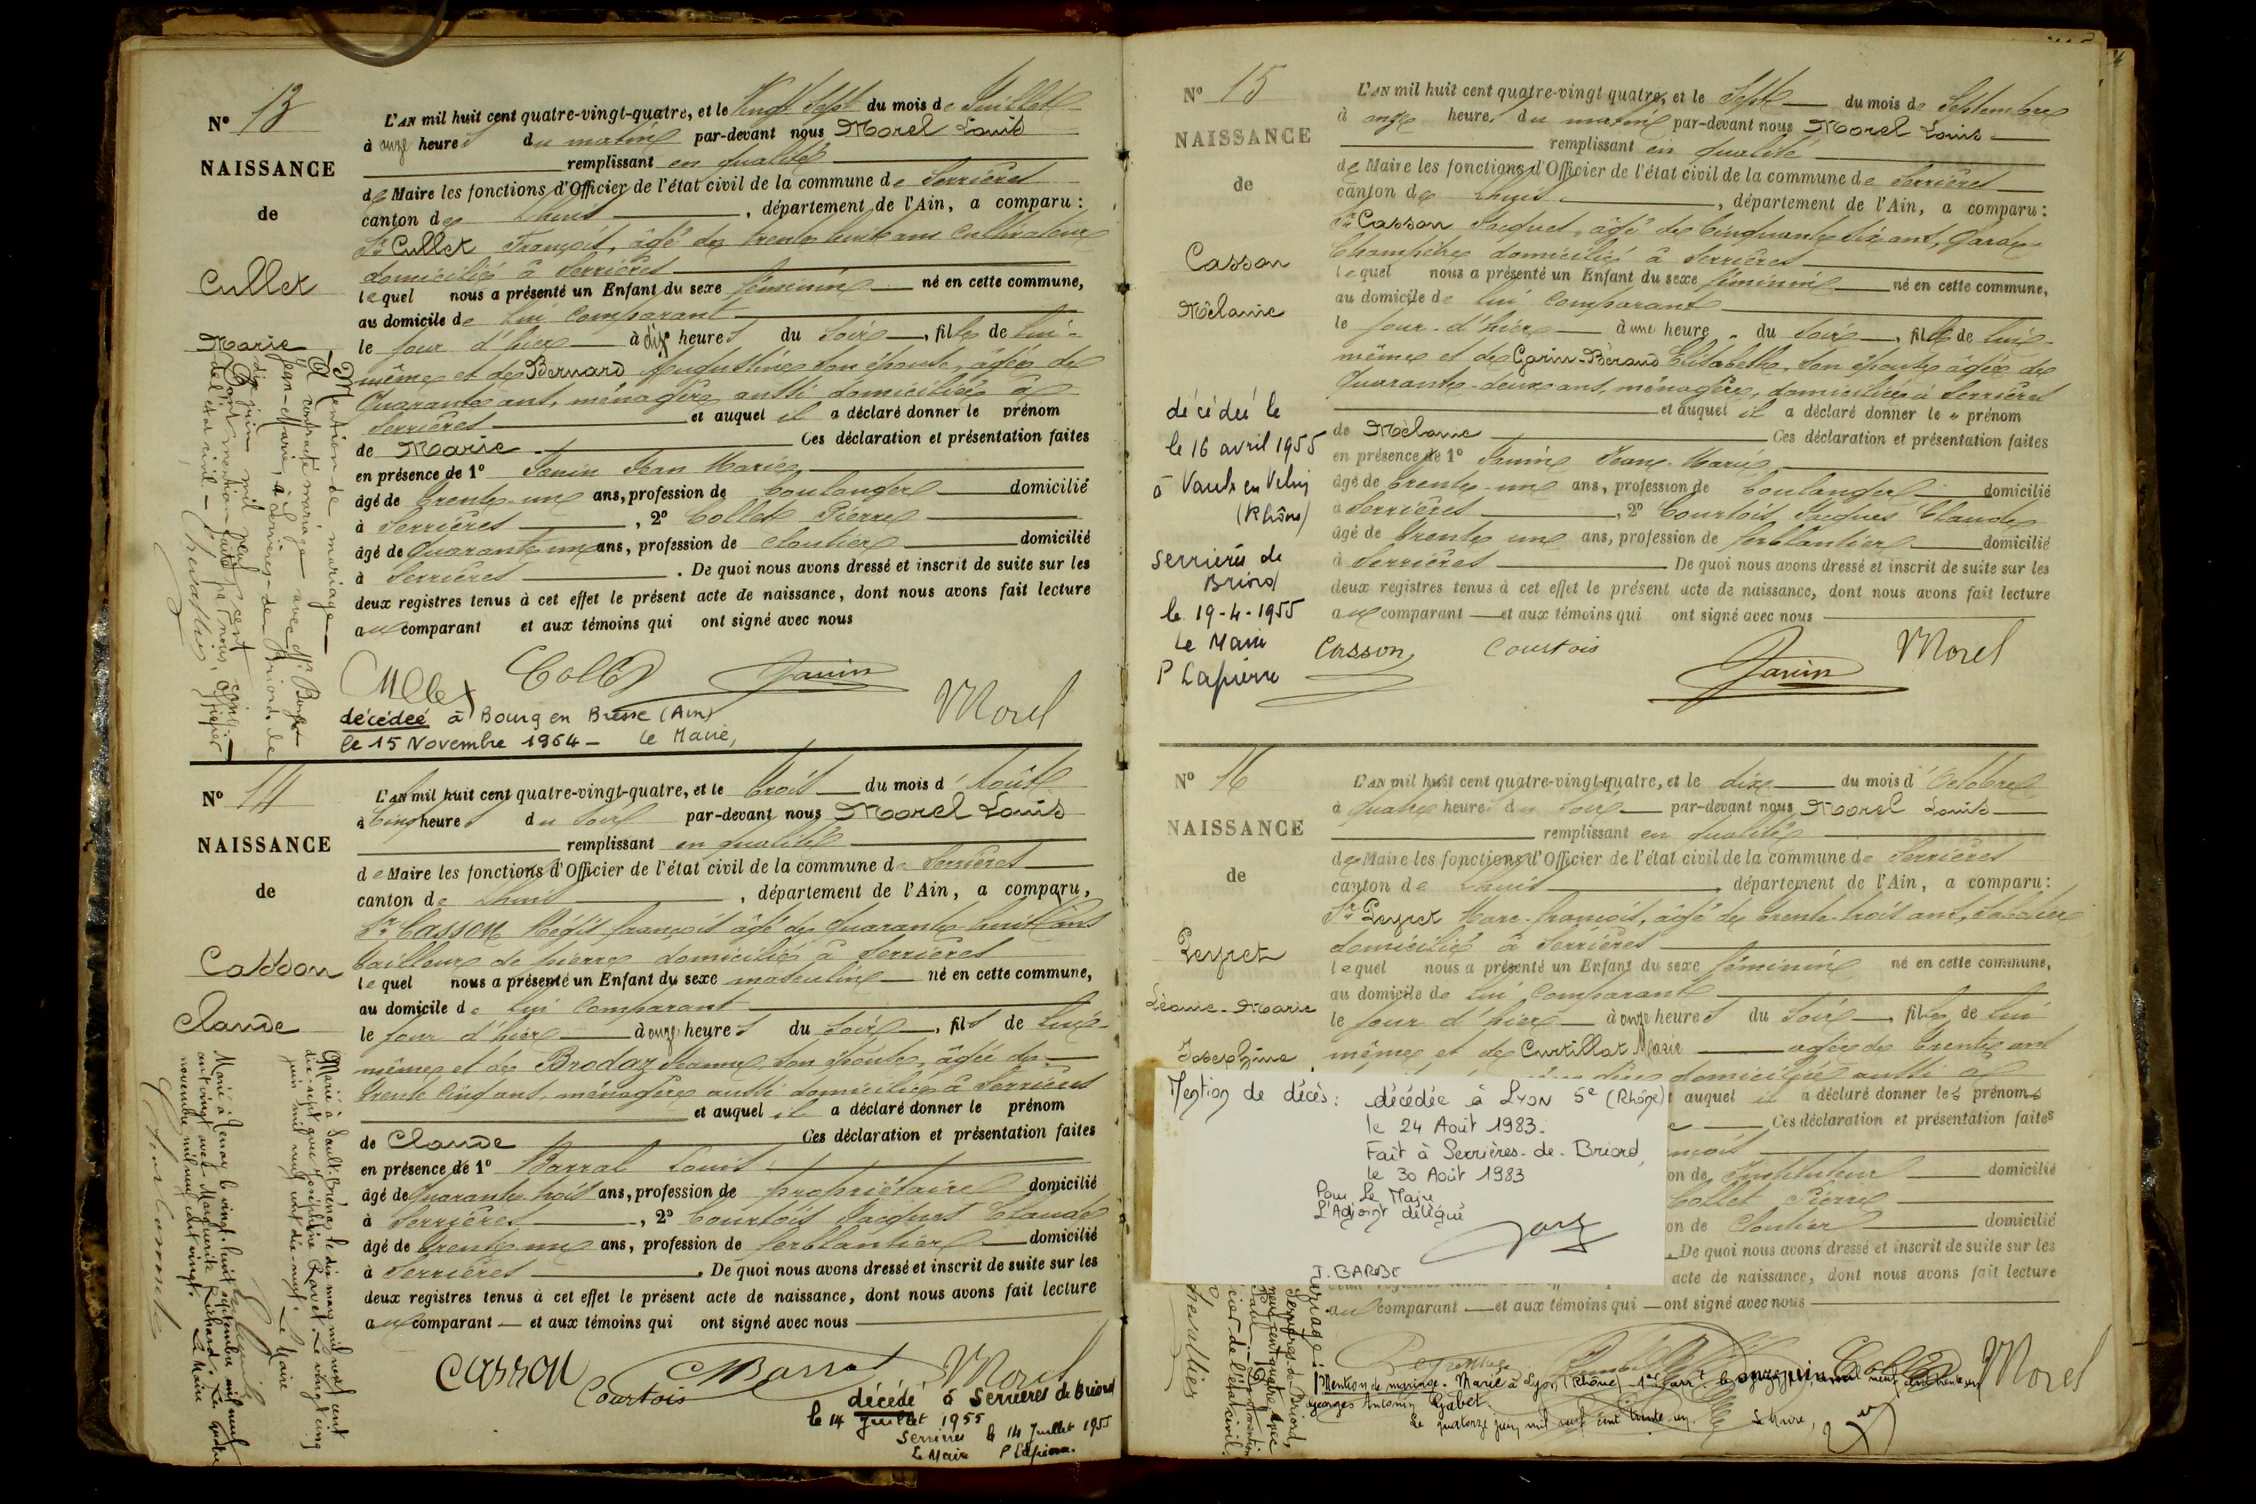 N° 13
NAISSANCE
de
Cullet
Marie
L'AN mil huit cent quatre-vingt-quatre, et le Vingt Sept du mois de Juillet
à onze heures du matin par-devant nous Morel Louis
remplissant en qualité
de Maire les fonctions d'Officier de l'état civil de la commune de Serrières
canton de Lhuis, département de l'Ain, a comparu:
Sr Cullet François, âgé de trente huit ans Cultivateur
domicilié à Serrières
lequel nous a présenté un Enfant du sexe féminin né en cette commune,
au domicile de lui Comparant
le jour d'hier à dix heures du soir, fille de lui-
même et de Bernard Augustine son épouse, âgée de
Quarante ans, ménagère aussi domiciliée à
Serrières et auquel il a déclaré donner le prénom
de Marie Ces déclaration et présentation faites
en présence de 1° Janin Jean Marie
âgé de trente-un ans, profession de boulanger domicilié
à Serrières, 2° Collet Pierre
âgé de Quarante-un ans, profession de cloutier domicilié
à Serrières. De quoi nous avons dressé et inscrit de suite sur les
deux registres tenus à cet effet le présent acte de naissance, dont nous avons fait lecture
au comparant et aux témoins qui ont signé avec nous
Cullet Collet Janin Morel
décédée à Bourg en Bresse (Ain)
le 15 Novembre 1964 - Le Maire,
Mention de mariage
A contracté mariage avec Mr
Jean-Marie, à Serrières-de-Briord, le
dix juin mil neuf cent cinq.
Dont mention faite par nous, officier
de l'état civil -
N° 14
NAISSANCE
de
Casson
Claude
L'AN mil huit cent quatre-vingt-quatre, et le trois du mois d'Août
à cinq heures du soir par-devant nous Morel Louis
remplissant en qualité
de Maire les fonctions d'Officier de l'état civil de la commune de Serrières
canton de Lhuis, département de l'Ain, a comparu,
Sr Casson Régis François âgé de quarante-huit ans
tailleur de pierre domicilié à Serrières
lequel nous a présenté un Enfant du sexe masculin né en cette commune,
au domicile de lui Comparant
le jour d'hier à onze heures du soir, fils de lui-
même et de Brodaz Jeanne, son épouse, âgée de
trente cinq ans, ménagère aussi domiciliée à Serrières
et auquel il a déclaré donner le prénom
de Claude Ces déclaration et présentation faites
en présence de 1° Barral Louis
âgé de Quarante-trois ans, profession de propriétaire domicilié
à Serrières, 2° Courtois Jacques Claude
âgé de trente-un ans, profession de ferblantier domicilié
à Serrières. De quoi nous avons dressé et inscrit de suite sur les
deux registres tenus à cet effet le présent acte de naissance, dont nous avons fait lecture
au comparant et aux témoins qui ont signé avec nous
Casson Courtois Barral Morel
décédé à Serrières de Briord
le 14 Juillet 1955
Serrières le 14 Juillet 1955
Le Maire P Lapierre
Marié à Sault-Brénaz le dix mars mil neuf cent
dix-sept avec Joséphine Ravet. Le vingt cinq
juin mil neuf cent dix-neuf. Le Maire
Marié à Tenay le vingt-huit septembre mil neuf
cent vingt avec Marguerite Richard. Le
novembre mil neuf cent vingt. Le Maire
N° 15
NAISSANCE
de
Casson
Mélanie
décédée le
le 16 avril 1955
à Vaulx en Velin
(Rhône)
Serrières de
Briord
le 19-4-1955
Le Maire
P Lapierre
L'AN mil huit cent quatre-vingt quatre, et le Sept du mois de Septembre
à onze heures du matin par-devant nous Morel Louis
remplissant en qualité
de Maire les fonctions d'Officier de l'état civil de la commune de Serrières
canton de Lhuis, département de l'Ain, a comparu:
Sr Casson Jacques, âgé de cinquante six ans, Garde
Champêtre domicilié à Serrières
lequel nous a présenté un Enfant du sexe féminin né en cette commune,
au domicile de lui Comparant
le jour d'hier à une heure du soir, fille de lui-
même et de Garin-Béraud Elisabeth, son épouse âgée de
Quarante-deux ans, ménagère, domiciliée à Serrières
et auquel il a déclaré donner le prénom
de Mélanie Ces déclaration et présentation faites
en présence de 1° Janin Jean-Marie
âgé de trente-un ans, profession de boulanger domicilié
à Serrières, 2° Courtois Jacques Claude
âgé de trente-un ans, profession de ferblantier domicilié
à Serrières De quoi nous avons dressé et inscrit de suite sur les
deux registres tenus à cet effet le présent acte de naissance, dont nous avons fait lecture
au comparant et aux témoins qui ont signé avec nous
Casson Courtois Janin Morel
N° 16
NAISSANCE
de
Peyret
Léonie-Marie
Joséphine
L'AN mil huit cent quatre-vingt-quatre, et le dix du mois d'Octobre
à quatre heures du soir par-devant nous Morel Louis
remplissant en qualité
de Maire les fonctions d'Officier de l'état civil de la commune de Serrières
canton de Lhuis, département de l'Ain, a comparu:
Sr Peyret Marc-François, âgé de trente-trois ans,
domicilié à Serrières
lequel nous a présenté un Enfant du sexe féminin né en cette commune,
au domicile de lui Comparant
le jour d'hier à onze heures du soir, fille de lui
même et de Curtillat Marie âgée de trente ans
domiciliée aussi à
auquel il a déclaré donner les prénoms
Ces déclaration et présentation faites
on de Instituteur domicilié
Collet Pierre
on de Cloutier domicilié
De quoi nous avons dressé et inscrit de suite sur les
acte de naissance, dont nous avons fait lecture
au comparant et aux témoins qui ont signé avec nous
Mention de décès: décédée à Lyon 5e (Rhône)
le 24 Août 1983.
Fait à Serrières-de-Briord,
le 30 Août 1983
Pour Le Maire
L'Adjoint délégué
J. BARBE
Morel
Mention de mariage. Marié à Lyon (Rhône) 1er arrt. le
Georges Antonin Gabet.
Le quatorze juin mil neuf cent trente-un. Le Maire,